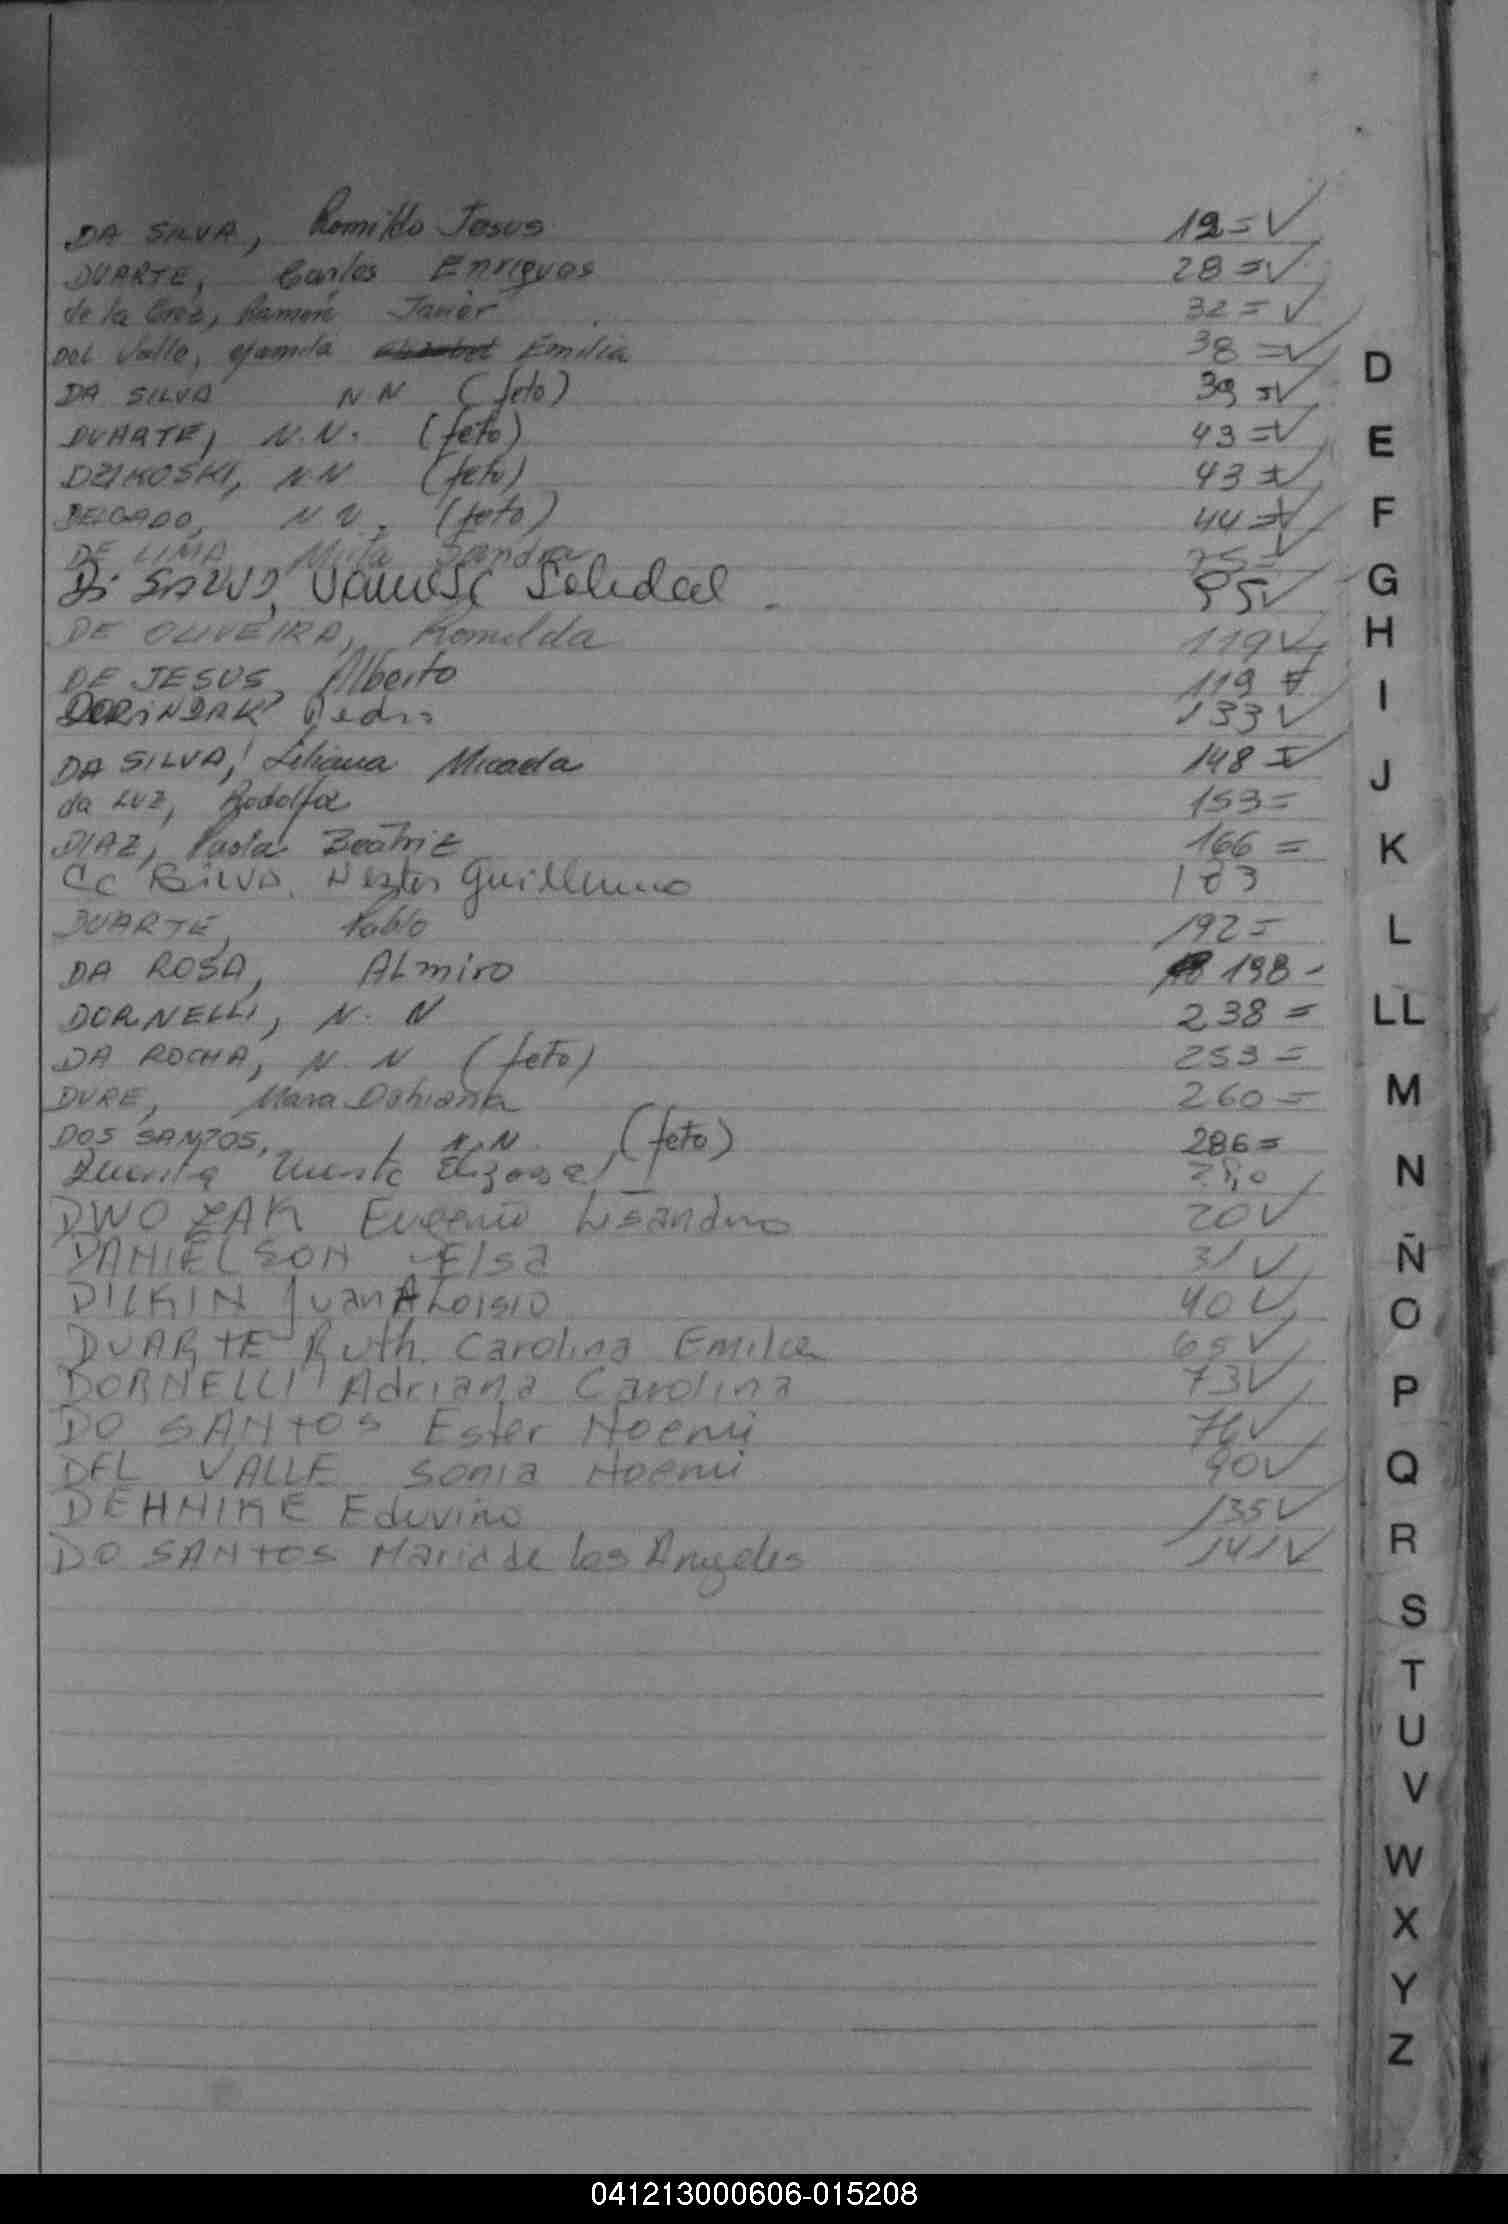 DA SILVA, Romildo Jesus 12=✓
DUARTE, Carlos Enriques 28=✓
de la Cruz, Ramón Javier 32=✓
DEL Valle, Yamila Emilia 38=✓
DA SILVA NN (feto) 39=✓
DUARTE, N.N. (feto) 43=✓
DZIKOSKI, N.N (feto) 43=✓
DELGADO, N.N. (feto) 44=✓
DE LIMA, Sandra 75=✓
Di SALVO, Vanesa Soledad. 95✓
DE OLIVEIRA, Romilda 119✓
DE JESUS, Alberto 119=✓
DORINDAK Pedro 133✓
DA SILVA, Liliana Micaela 148=✓
da LUZ, Rodolfo 153=
DIAZ, Paola Beatriz 166=
SILVA, Nestor Guillermo 183
DUARTE, Pablo 192=
DA ROSA, ALmiro 198-
DORNELLI, N. N 238=
DA ROCHA, N. N (feto) 253=
DURE, Mara Dahiana 260=
DOS SANTOS, N.N. (feto) 286=
DWOZAK Eugenio Lisandro 20✓
DANIELSON Elsa 31✓
DILKIN Juan ALoisio 40✓
DUARTE Ruth Carolina Emilce 65✓
DORNELLI Adriana Carolina 73✓
DO SANTOS Ester Noemi 76✓
DEL VALLE Sonia Noemi 90✓
DEHNIKE Eduvino 135✓
DO SANTOS Maria de los Angeles 141✓
D
E
F
G
H
I
J
K
L
LL
M
N
Ñ
O
P
Q
R
S
T
U
V
W
X
Y
Z
041213000606-015208